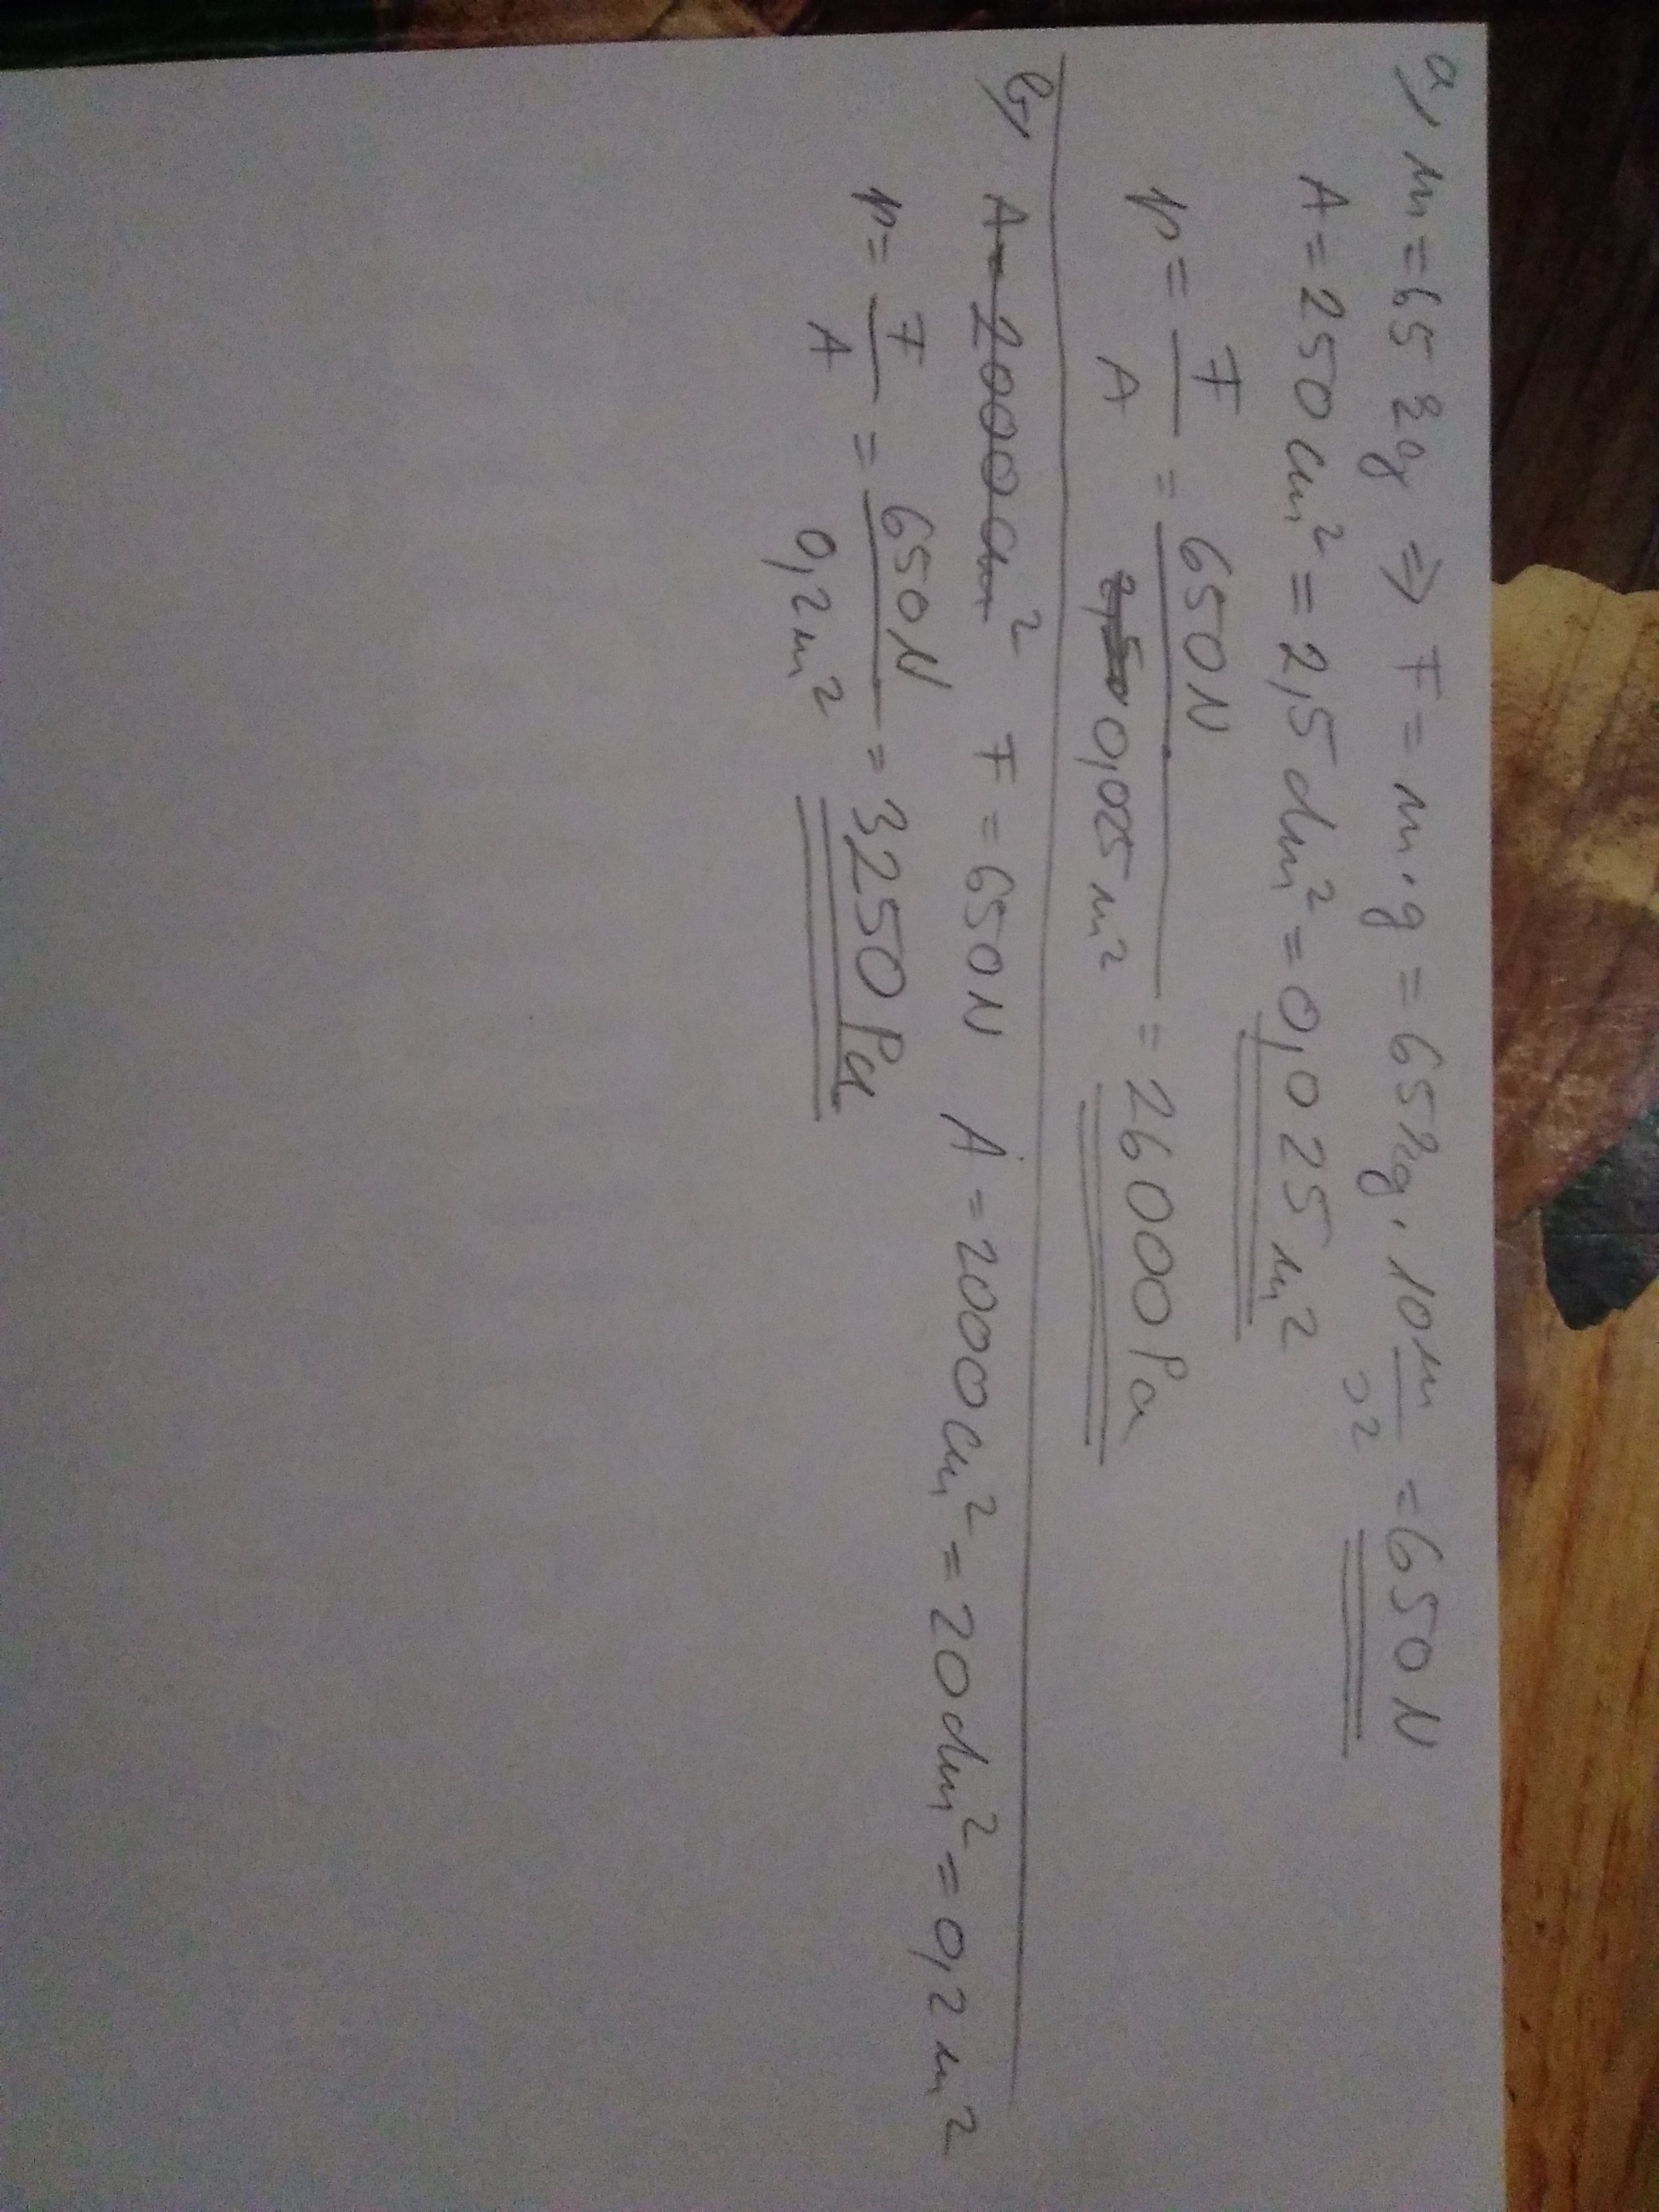 a, m = 65 kg ⇒ F = m·g = 65 kg · 10 m/s² = 650 N
A = 250 cm² = 2,5 dm² = 0,025 m²
p = F/A = 650 N / 0,025 m² = 26000 Pa
b, A = 2000 cm² F = 650 N A = 2000 cm² = 20 dm² = 0,2 m²
p = F/A = 650 N / 0,2 m² = 3250 Pa